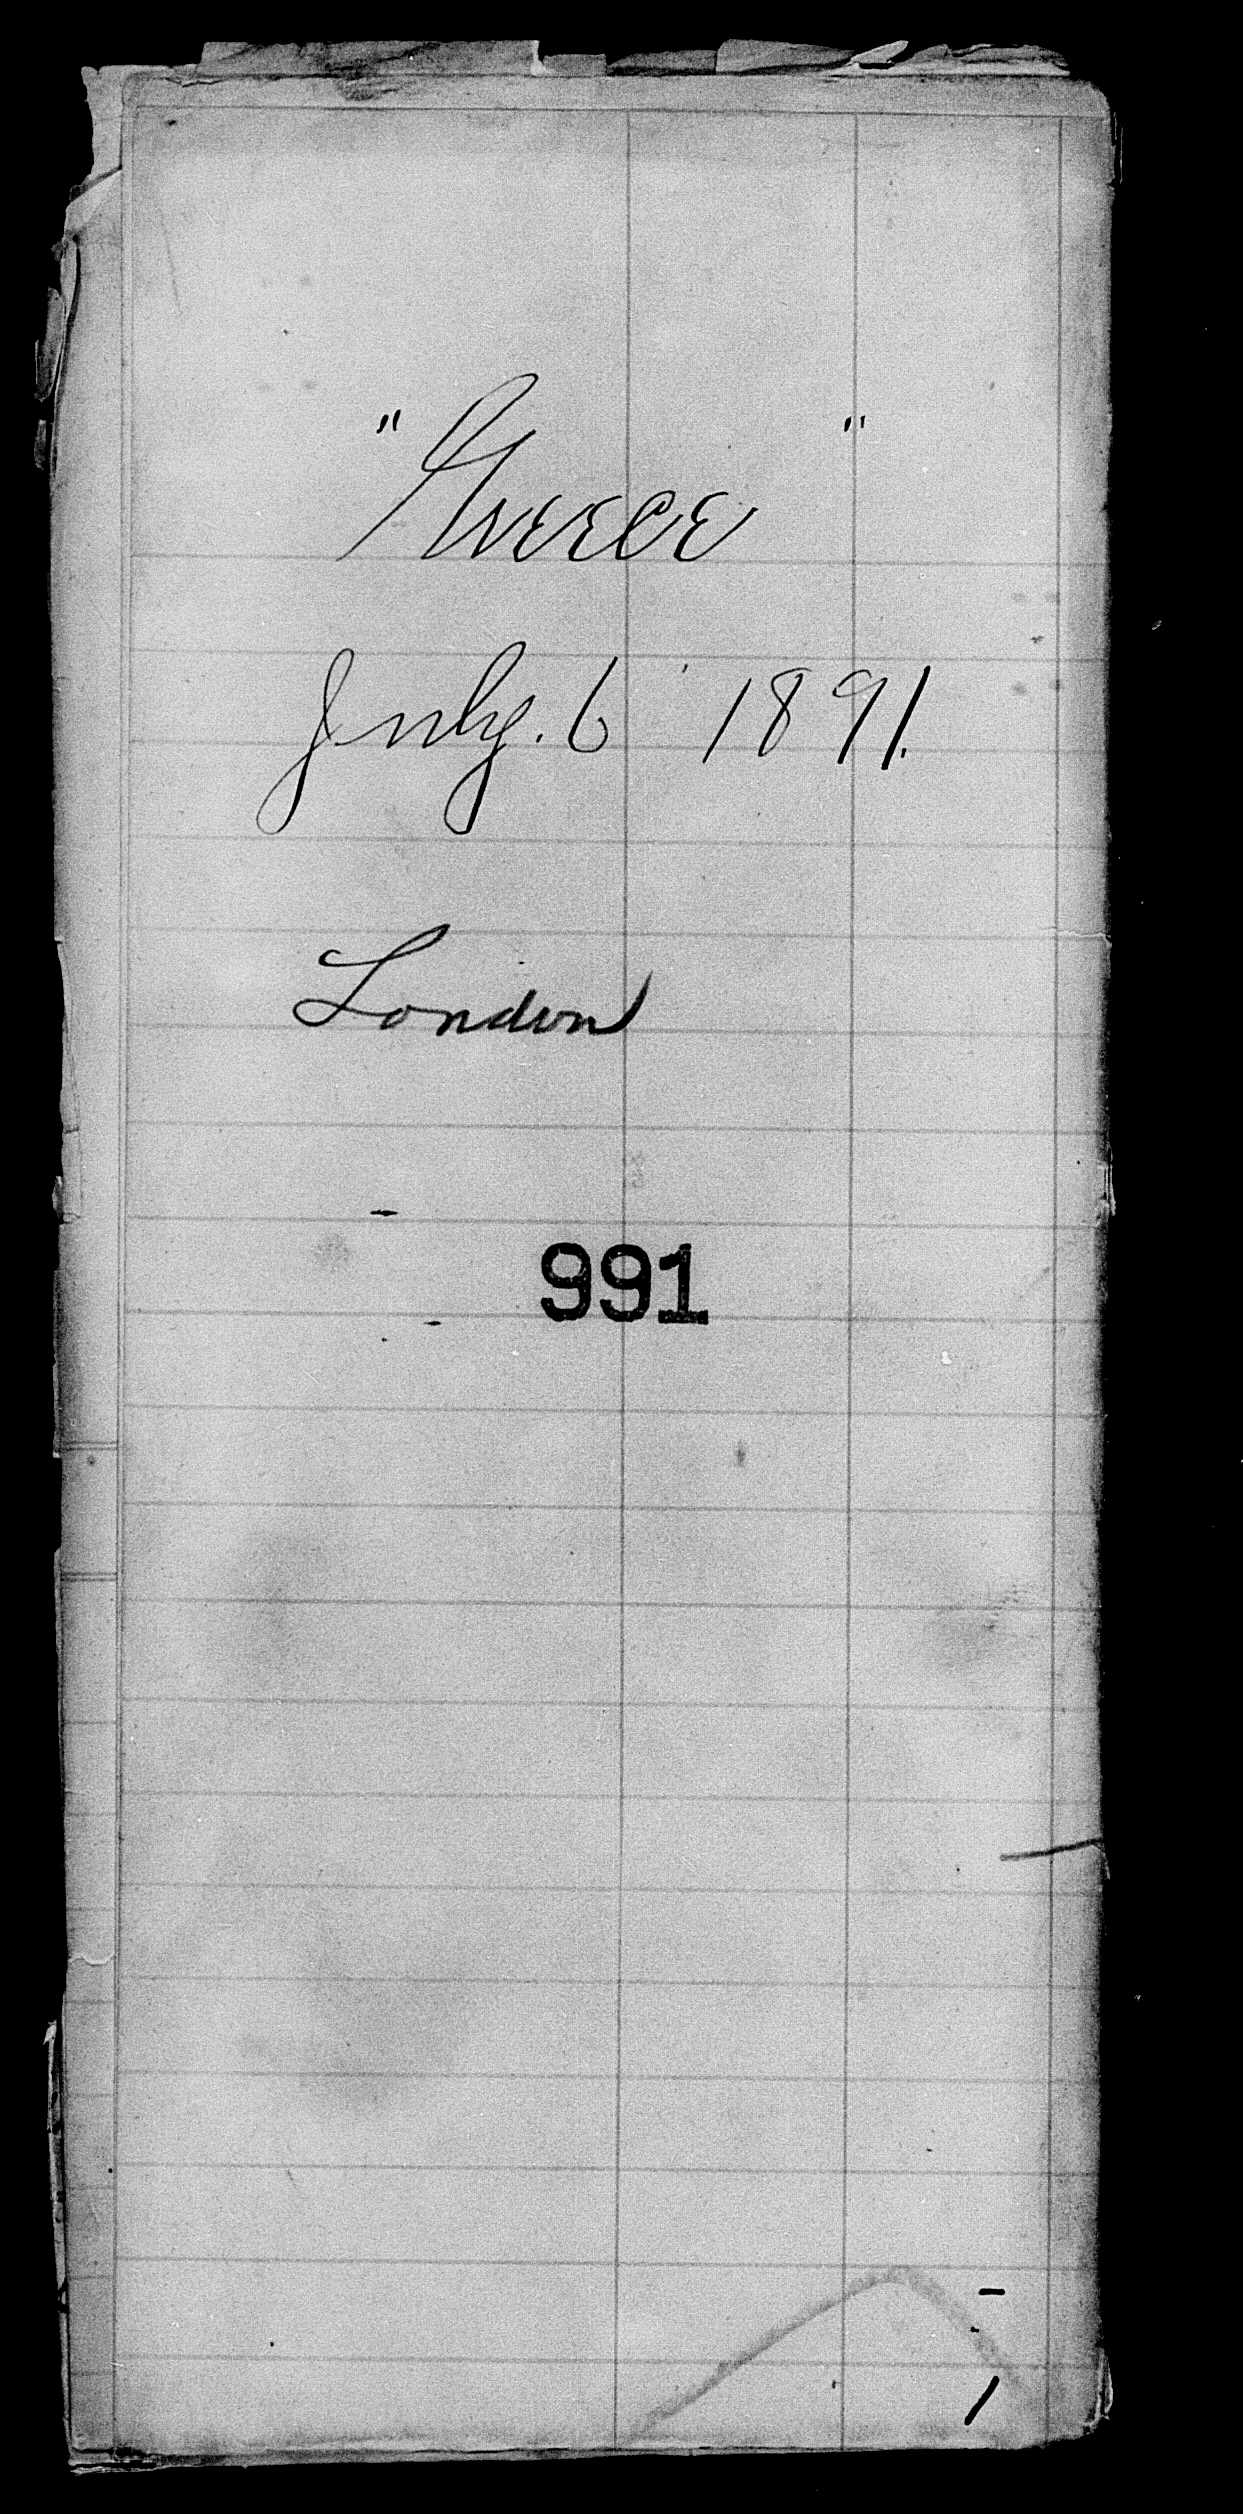 "Greece"
July. 6 1891.
London
991